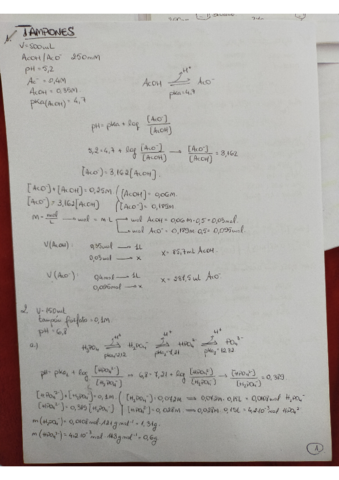 1. TAMPONES
V = 500 mL
AcOH/AcO⁻ 250mM
pH = 5,2
Ac⁻ = 0,4M
AcOH = 0,35M
pka(AcOH) = 4,7
AcOH ⇌ AcO⁻
H⁺
pka=4,7
pH = pka + log [AcO⁻]/[AcOH]
5,2 = 4,7 + log [AcO⁻]/[AcOH] → [AcO⁻]/[AcOH] = 3,162
[AcO⁻] = 3,162[AcOH].
[AcO⁻] + [AcOH] = 0,25M } [AcOH] = 0,06M.
[AcO⁻] = 3,162[AcOH] } [AcO⁻] = 0,189M.
M = mol/L → mol = M·L → mol AcOH = 0,06M·0,5 = 0,03mol.
→ mol AcO⁻ = 0,189M·0,5 = 0,095mol.
V(AcOH): 0,35mol → 1L
0,03mol → x
x = 85,7mL AcOH.
V(AcO⁻): 0,4mol → 1L
→ x
x = AcO⁻
2. V = 150mL
tampón fosfato = 0,1M
pH = 6,8
a) H₃PO₄ ⇌ H₂PO₄⁻ ⇌ HPO₄²⁻ ⇌ PO₄³⁻
H⁺ H⁺ H⁺
pka₂=7,21
pH = pka₂ + log [HPO₄²⁻]/[H₂PO₄⁻] → 6,8 = 7,21 + log [HPO₄²⁻]/[H₂PO₄⁻] → [HPO₄²⁻]/[H₂PO₄⁻] = 0,389
[HPO₄²⁻] + [H₂PO₄⁻] = 0,1M } [H₂PO₄⁻] = 0,072M → 0,072M · 0,15L = 0,0108mol H₂PO₄⁻
[HPO₄²⁻] = 0,389[H₂PO₄⁻] } [HPO₄²⁻] = 0,028M → 0,028M · 0,15L = 4,2·10⁻³mol HPO₄²⁻
m(H₂PO₄⁻) = 0,0108mol · = 1,3g.
m(HPO₄²⁻) = 4,2·10⁻³mol · = 0,6g
1